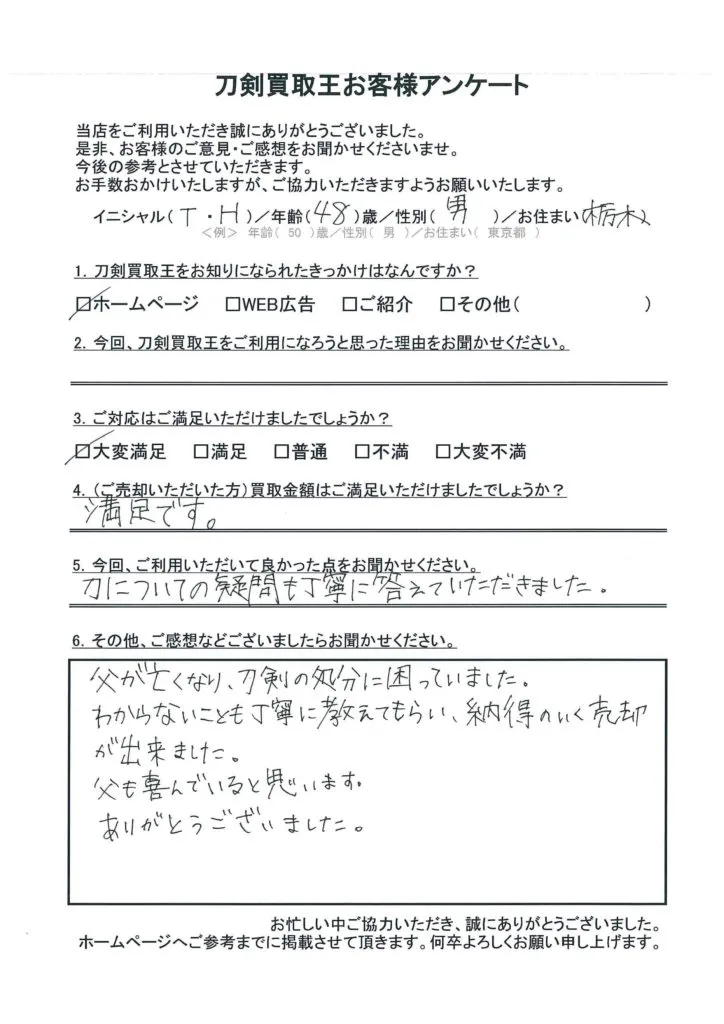 刀剣買取王お客様アンケート
当店をご利用いただき誠にありがとうございました。
是非、お客様のご意見・ご感想をお聞かせくださいませ。
今後の参考とさせていただきます。
お手数おかけいたしますが、ご協力いただきますようお願いいたします。
イニシャル（T・H）／年齢（48）歳／性別（男　）／お住まい栃木
＜例＞ 年齢（ 50 ）歳／性別（ 男 ）／お住まい（ 東京都 ）
1．刀剣買取王をお知りになられたきっかけはなんですか？
☑ホームページ　□WEB広告　□ご紹介　□その他（　　　　　　　）
2．今回、刀剣買取王をご利用になろうと思った理由をお聞かせください。
3．ご対応はご満足いただけましたでしょうか？
☑大変満足　□満足　□普通　□不満　□大変不満
4．（ご売却いただいた方）買取金額はご満足いただけましたでしょうか？
満足です。
5．今回、ご利用いただいて良かった点をお聞かせください。
刀についての疑問も丁寧に答えていただきました。
6．その他、ご感想などございましたらお聞かせください。
父が亡くなり、刀剣の処分に困っていました。
わからないことも丁寧に教えてもらい、納得のいく売却
が出来ました。
父も喜んでいると思います。
ありがとうございました。
お忙しい中ご協力いただき、誠にありがとうございました。
ホームページへご参考までに掲載させて頂きます。何卒よろしくお願い申し上げます。